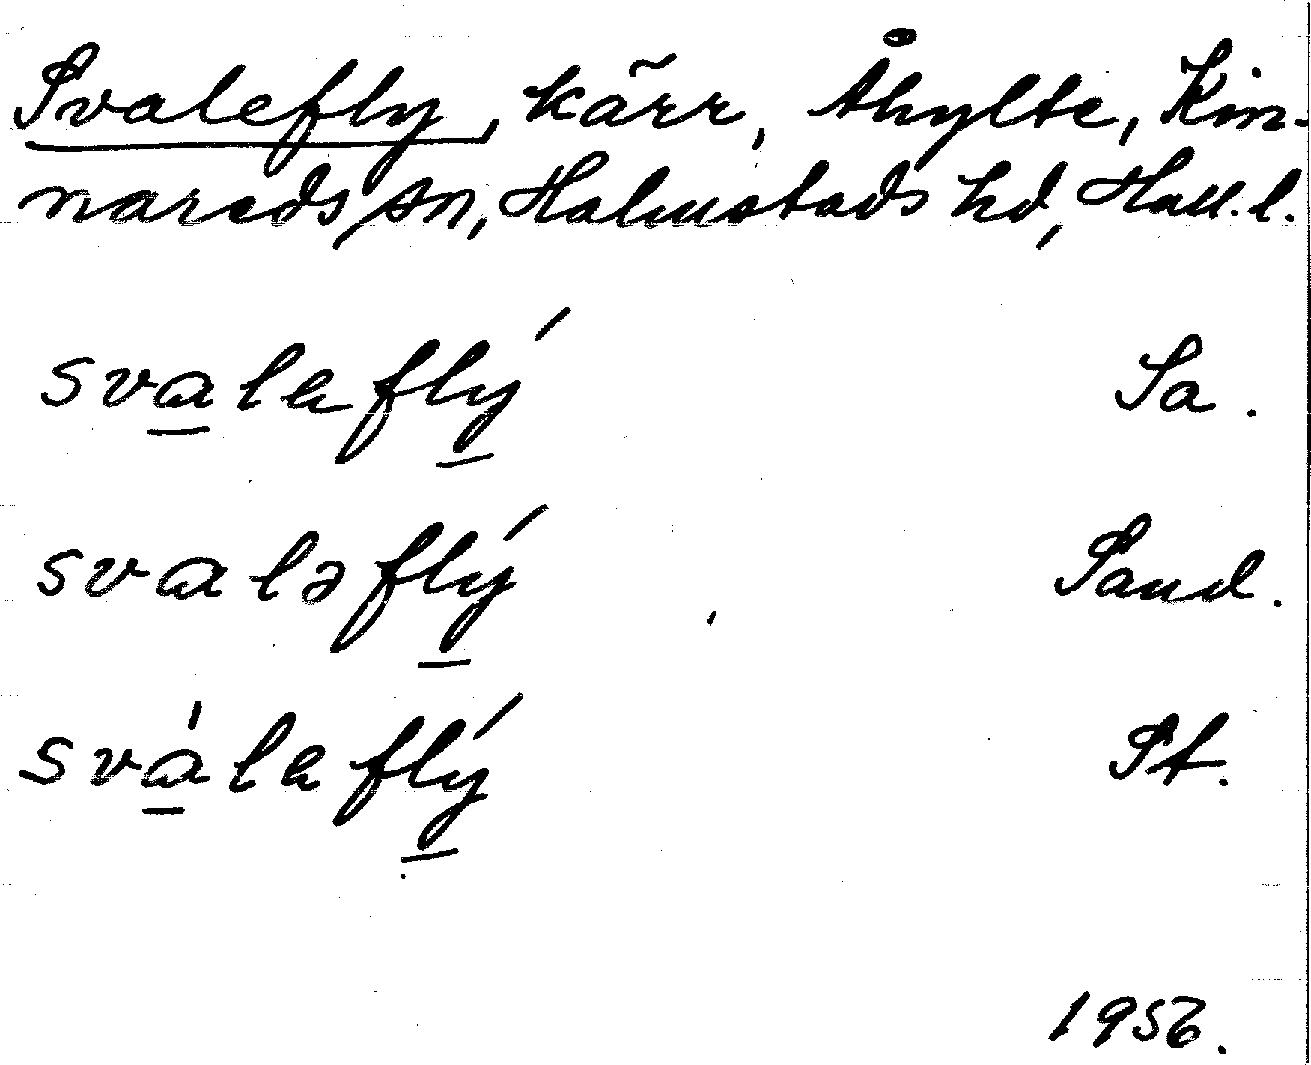 Svalefly, kärr, Åhylte, Kin-
nareds sn, Halmstads hd, Hall. l.
svalaflý Sa.
svaləflý Sand.
sválaflý St.
1956.